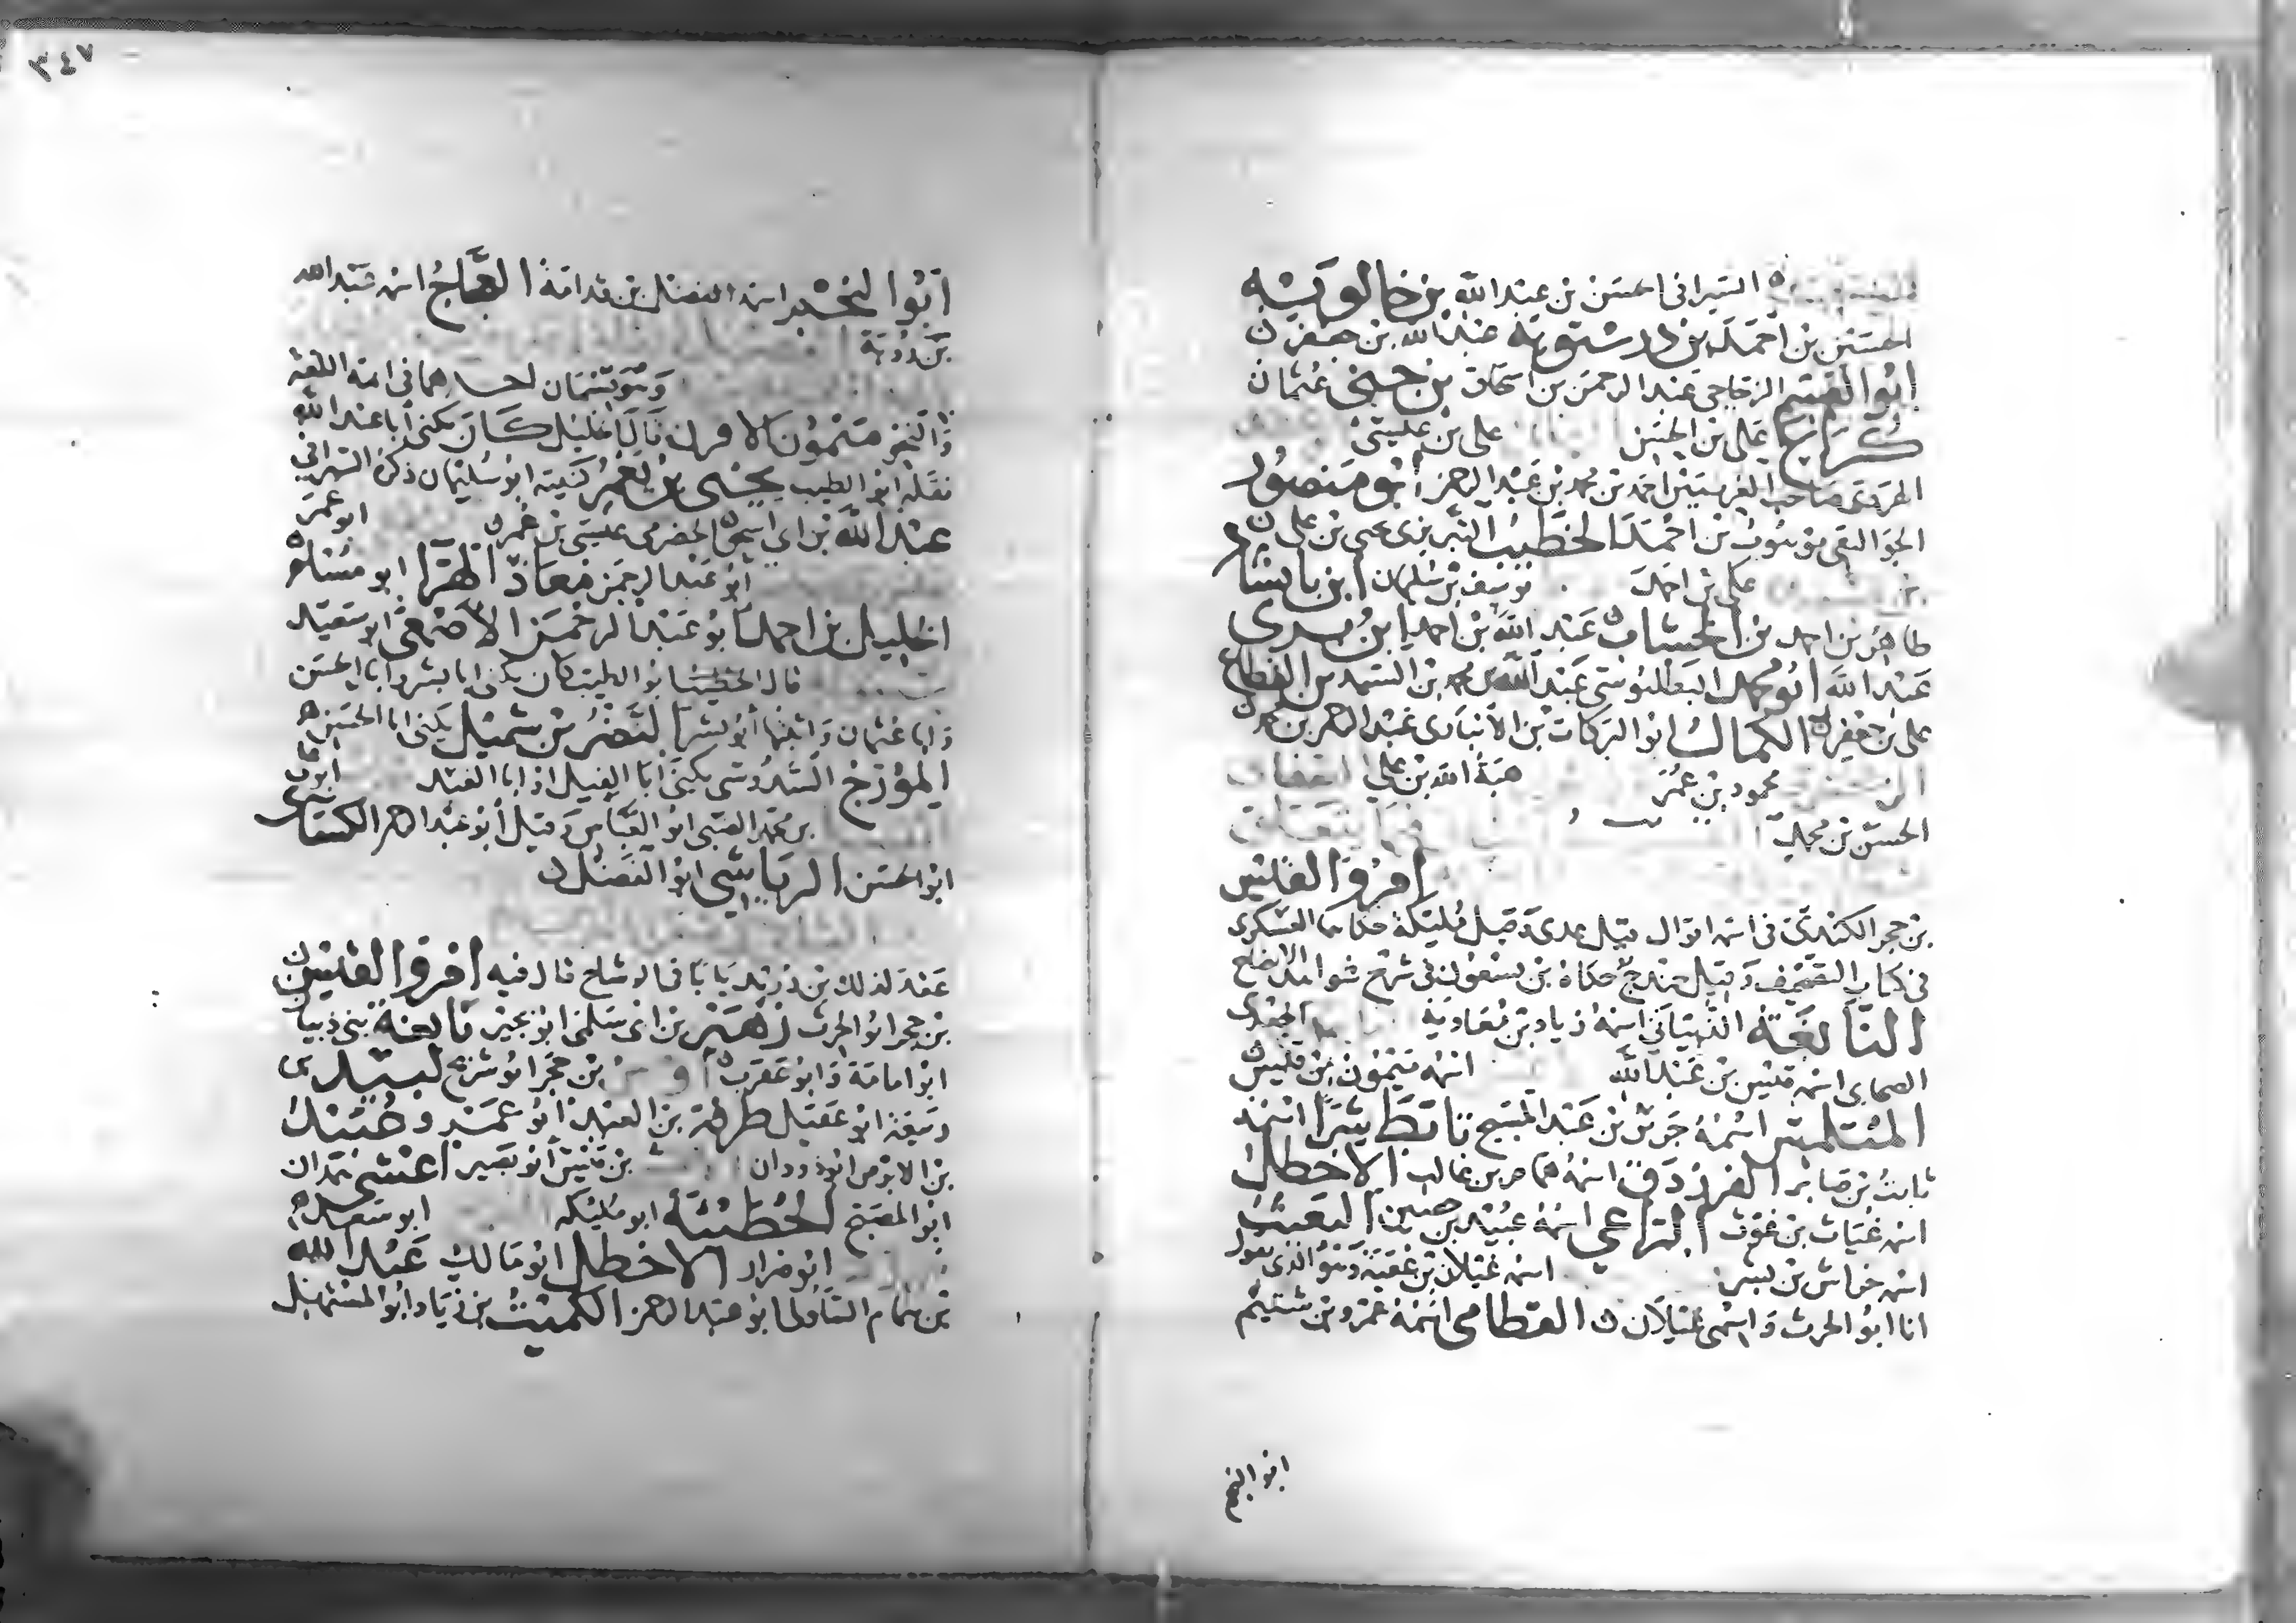 السيرافي الحسن بن عبد الله بن خالويه
الحسين بن احمد بن درستويه عبد الله بن جعفر
ابو القسم الزجاجي عبد الرحمن بن اسحاق بن جني عثمان
كراع علي بن الحسن علي بن عيسى
الهروي صاحب الغريبين احمد بن محمد بن عبد الرحمن ابو منصور
الجواليقي موهوب بن احمد الخطيب التبريزي يحيى بن علي
علي بن احمد يوسف بن سليمان ابن بابشاذ
طاهر بن احمد بن الخشاب عبد الله بن احمد ابن بري
عبد الله ابو محمد البطليوسي عبد الله بن محمد بن السيد بن القطاع
علي بن جعفر الكمال ابو البركات بن الانباري عبد الرحمن بن محمد
محمود بن عمر هبة الله بن علي
الحسن بن محمد
امرؤ القيس
بن حجر الكندي في اسمه اقوال قيل عدي وقيل مليكة حكاهما العسكري
في كتاب التصحيف وقيل حندج حكاه بن يسعون في شرح شواهد الايضاح
النابغة الذبياني اسمه زياد بن معاوية الجعدي
الصحابي اسمه قيس بن عبد الله اسمه ميمون بن قيس
المتلمس اسمه جرير بن عبد المسيح تابط شرا اسمه
ثابت بن جابر الفرزدق اسمه همام بن غالب الاخطل
اسمه غياث بن غوث الراعي اسمه عبيد بن حصين البعيث
اسمه خداش بن بشر اسمه غيلان بن عقبة وهو الذي يقول
انا ابو الحرث واسمي غيلان القطامي اسمه عمرو بن شييم
ابو النجم
٣٤٧
ابو النجم اسمه الفضل بن قدامة العجاج اسمه عبد الله
بن روبة
وهو قسمان احدهما في ائمة اللغة
والنحو ميمون الاقرن قال الخليل كان يكنى ابا عبد الله
نقله ابو الطيب يحيى بن يعمر كنيته ابو سليمان ذكره السيرافي
عبد الله بن ابي اسحق الحضرمي عيسى بن عمر ابو عمر
ابو عبد الرحمن معاذ الهرا ابو مسلم
الخليل بن احمد ابو عبد الرحمن الاصمعي ابو سعيد
قال ابو الطيب كان يكنى ابا بشر وابا الحسن
وابا عثمان واثبتها ابو بشر النضر بن شميل يكنى ابا الحسن
المؤرج السدوسي يكنى ابا الفيد
بن محمد العتبي ابو العباس وقيل ابو عبد الرحمن الكسائي
ابو الحسن الرياشي ابو الفضل
عقد لذلك بن دريد بابا في الوشاح قال فيه امرؤ القيس
بن حجر ابو الحرث زهير بن ابي سلمى ابو بجير نابغة بني ذبيان
ابو امامة وابو عقرب بن حجر ابو شريح لبيد بن
ربيعة ابو عقيل طرفة بن العبد ابو عمرو وعبيد
بن الابرص ابو دودان بن قيس ابو بصير اعشى همدان
ابو المصبح الحطيئة ابو مليكة ابو سعد
ابو ضرار الاخطل ابو مالك عبد الله
بن همام السلولي ابو عبد الرحمن الكميت بن زياد ابو المستهل